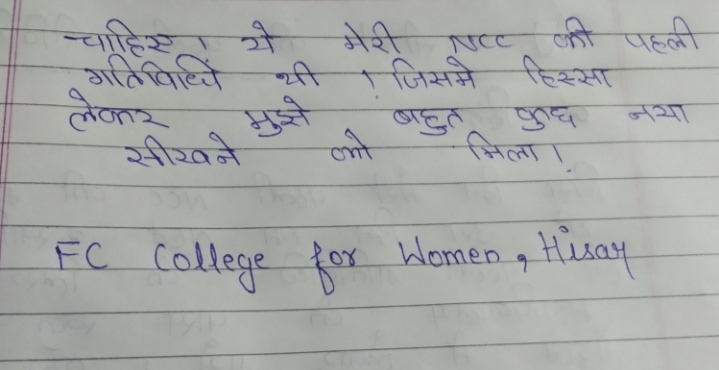 चाहिए। ये मेरी NCC की पहली
गतिविधि थी। जिसमे हिस्सा
लेकर मुझे बहुत कुछ नया
सीखने को मिला।
FC College for Women, Hisar